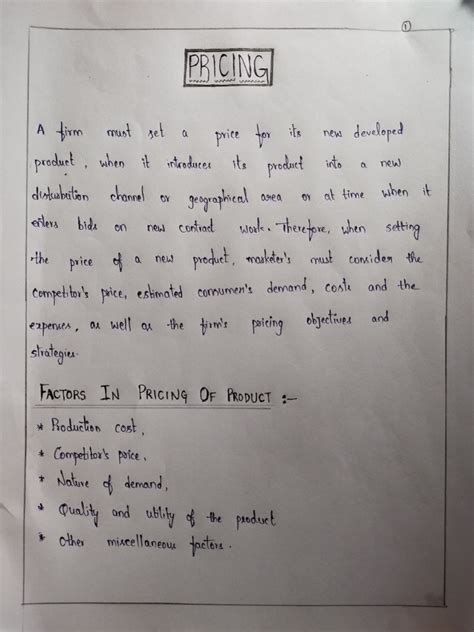 1
PRICING
A firm must set a price for its new developed
product, when it introduces its product into a new
disturbation channel or geographical area or at time when it
enters bids on new contract work. Therefore, when setting
the price of a new product, marketer's must consider the
competitor's price, estimated consumer's demand, costs and the
expenses, as well as the firm's pricing objectives and
strategies.
FACTORS IN PRICING OF PRODUCT :-
* Production cost,
* Competitor's price,
* Nature of demand,
* Quality and utility of the product
* Other miscellaneous factors.